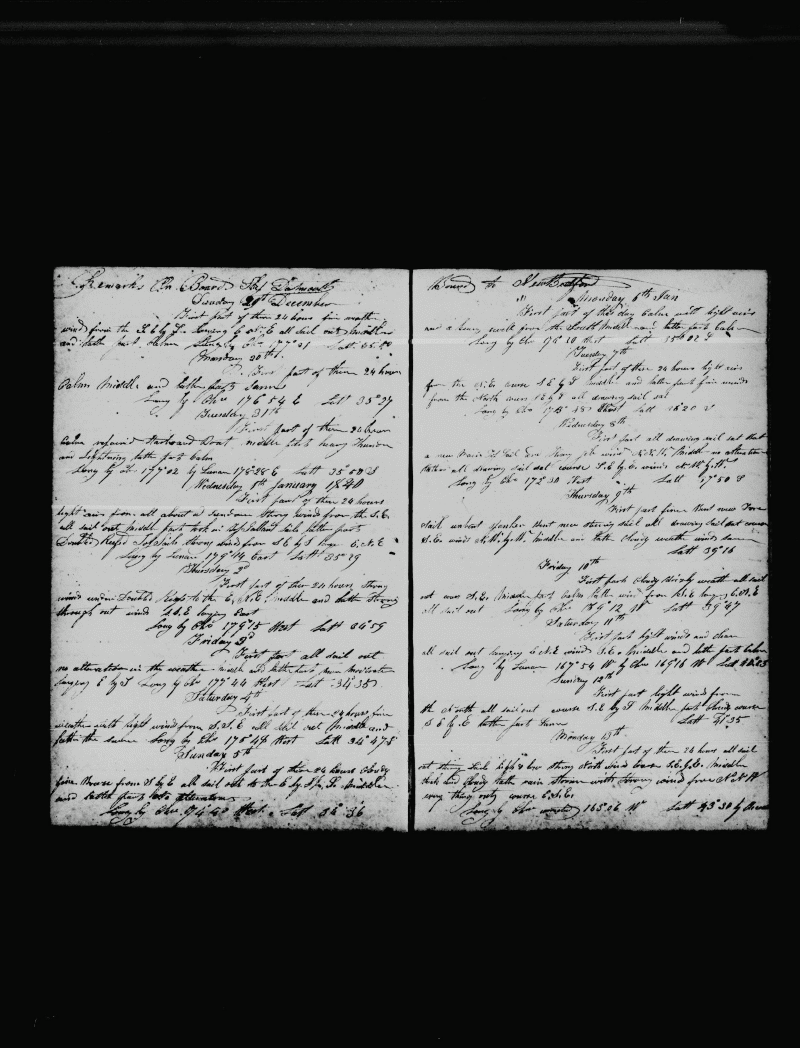 Remarks On Board Ship Dartmouth
Sunday 29th December
First part of these 24 hours fine weather
wind from the S E by S. Steering E all sail out Middle
and latter part Calm Long by Chr 177°21 Latt 35.50
Monday 30th
First part of these 24 hours
Calm Middle and latter part Same
Long by Chr 176°54 E Latt 35°27
Tuesday 31th
First part of these 24 hours
Calm repaired Starboard Boat middle part heavy Thunder
and Lightning latter part Calm
Long by Chr 177°02 by Lunar 178°28 E Latt 35°52 S
Wednesday 1th January 1840
First part of these 24 hours
light airs from all about a squadron Strong wind from the S.E.
all sail out middle part took in topgallant sails latter part
Double Reeft Topsails strong wind from S E by S E.N.E
Long by Lunar 179°14 East Latt 35°29
Thursday 2d
First part of these 24 hours strong
wind under Double reefs to the E.N.E. middle and latter strong
through out winds S.S.E. heading East
Long by Chr 179°15 West Latt 34°59
Friday 3d
First part all sail out
no alteration in the weather middle and latter part more moderate
heading E by S Long by Chr 177°44 West Latt 34°38
Saturday 4th
First part of these 24 hours fine
weather with light wind from S.S.E all sail out Middle and
latter the same Long by Chr 175°48 West Latt 34°47 S
Sunday 5th
First part of these 24 hours cloudy
fine breeze from S by E all sail out to the E by S Middle
and latter part no alteration
Long by Chr 174 40 West. Latt 34°36
Bound to New Bedford
Monday 6th Jan
First part of this day Calm with light airs
and a heavy swell from the South Middle and latter part Calm
Long by Chr 174°10 West Latt 35°02 S
Tuesday 7th
First part of these 24 hours light airs
from the N.E. course S E by E middle and latter part fine winds
from the North course S E by E all drawing sail set
Long by Chr 173°48 West Latt 36 20 S
Wednesday 8th
First part all drawing sail set Bent
a new Main Top Sail Gon heavy jib wind N.N.W. Middle no alteration
latter all drawing sail out course S.E. by E. winds N.W by W.
Long by Chr 172°30 West Latt 37°50 S
Thursday 9th
First part fine Bent new Fore
Sail unbent Spanker Bent new steering sail all drawing sail out course
S.E. winds N.W. by W. Middle and latter Cloudy weath winds same
Latt 39°16
Friday 10th
First part Cloudy drizly weath all sail
out course S.E. Middle part Calm latter wind from S.E. heading E.N.E
all sail out Long by Chr 169°12 W Latt 39°47
Saturday 11th
First part light winds and clear
all sail out heading E N.E winds S.E. Middle and latter part Calm
Long by Lunar 167°54 W by Chr 169°16 W
Sunday 12th
First part light wind from
the North all sail out course S.E. by E Middle part cloudy course
S E by E latter part Same Latt 41°35
Monday 13th
First part of these 24 hours all sail
out steering sails high & low strong North wind course S.E. by E. Middle
dark and cloudy latter rain storm with strong wind from N.N.W
every thing wet course E.S.E.
Long by Chr 165°06 W. Latt 43°30